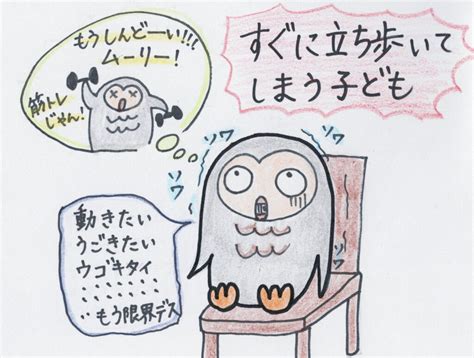 すぐに立ち歩いて
しまう子ども
もうしんどーい!!!
ムーリー!
筋トレ
じゃん!
ソワ
ソワ
ソワ
ソワ
動きたい
うごきたい
ウゴキタイ
、、、、、、
もう限界デス